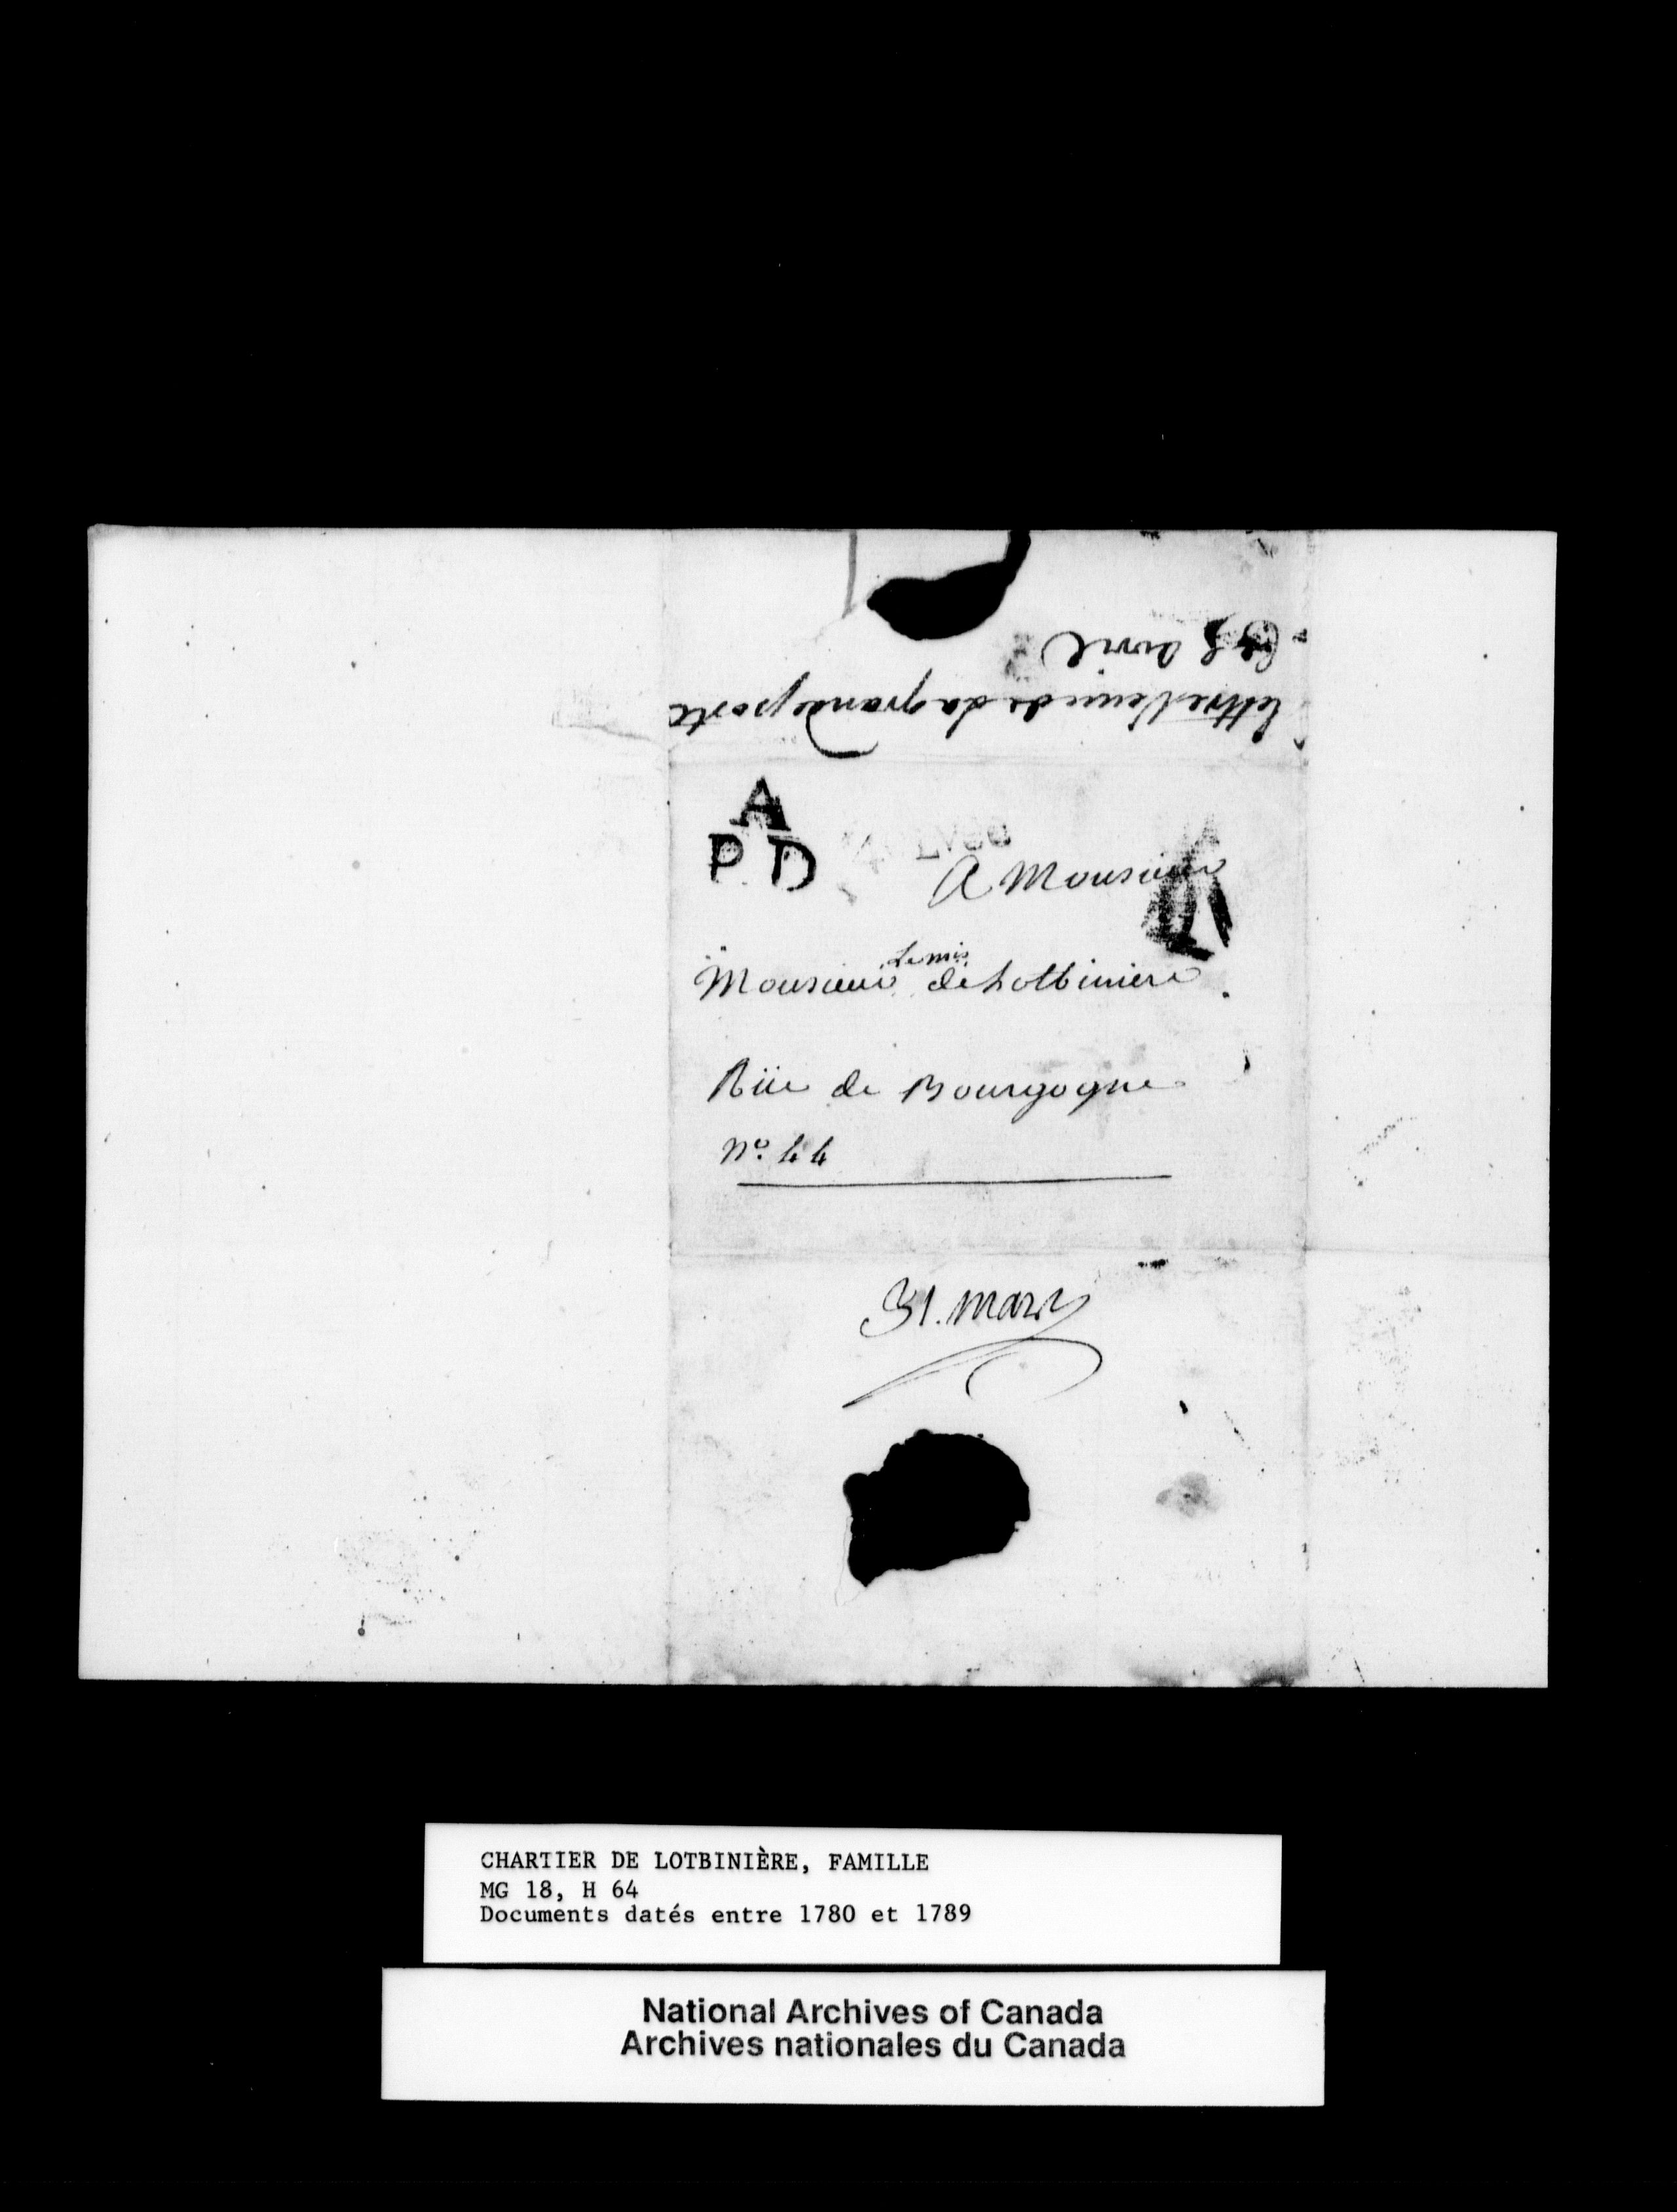 lettre venue de la grande poste
5 avril
A
P D
4 Lvée
A Monsieur
Monsieur Le mis de Lotbiniere
Rüe de Bourgogne
No. 44
31. mars
CHARTIER DE LOTBINIÈRE, FAMILLE
MG 18, H 64
Documents datés entre 1780 et 1789
National Archives of Canada
Archives nationales du Canada